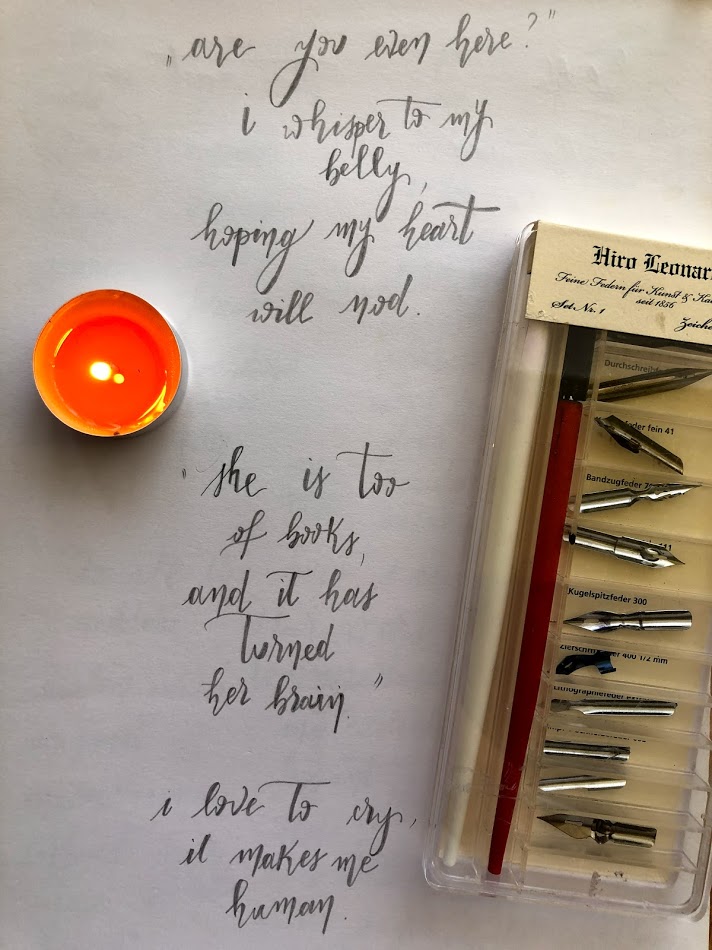 „are you even here?”
i whisper to my
belly,
hoping my heart
will nod.
"she is too
of books,
and it has
turned
her brain."
i love to cry,
it makes me
human.
Hiro Leonar
Feine Federn für Kunst & Ka
seit 1856
Set Nr. 1
Zeiche
Durchschreibf
feder fein 41
Bandzugfeder
Kugelspitzfeder 300
Zierschrif 400 1/2 mm
Lithographiefeder